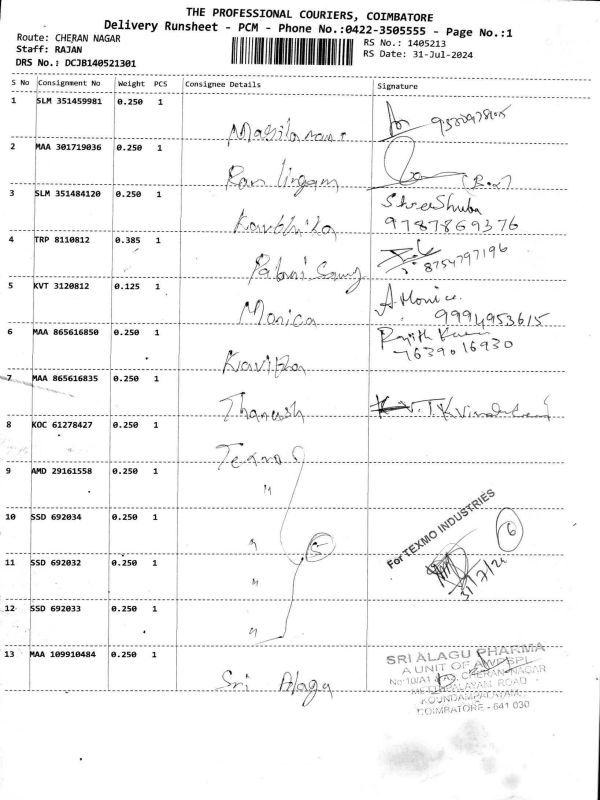 THE PROFESSIONAL COURIERS, COIMBATORE
Delivery Runsheet - PCM - Phone No.:0422-3505555 - Page No.:1
Route: CHERAN NAGAR
Staff: RAJAN
DRS No.: DCJB140521301
RS No.: 1405213
RS Date: 31-Jul-2024
S No Consignment No Weight PCS Consignee Details Signature
1 SLM 351459981 0.250 1
2 MAA 301719036 0.250 1 Ram lingam
3 SLM 351484120 0.250 1 ShreeShuba
9787869376
4 TRP 8110812 0.385 1 Palani Samy 8754797196
5 KVT 3120812 0.125 1 Monica A.Monica
9994953615
6 MAA 865616850 0.250 1 Kavitha
7639016930
7 MAA 865616835 0.250 1 Thanush
8 KOC 61278427 0.250 1 Texmo
9 AMD 29161558 0.250 1 "
10 SSD 692034 0.250 1 " 5
For TEXMO INDUSTRIES
6
31/7/24
11 SSD 692032 0.250 1 "
12 SSD 692033 0.250 1 "
13 MAA 109910484 0.250 1 Sri Alagu
SRI ALAGU PHARMA
A UNIT OF
CHERAN NAGAR
METTUPALAYAM ROAD
KOUNDAMPALAYAM,
COIMBATORE - 641 030